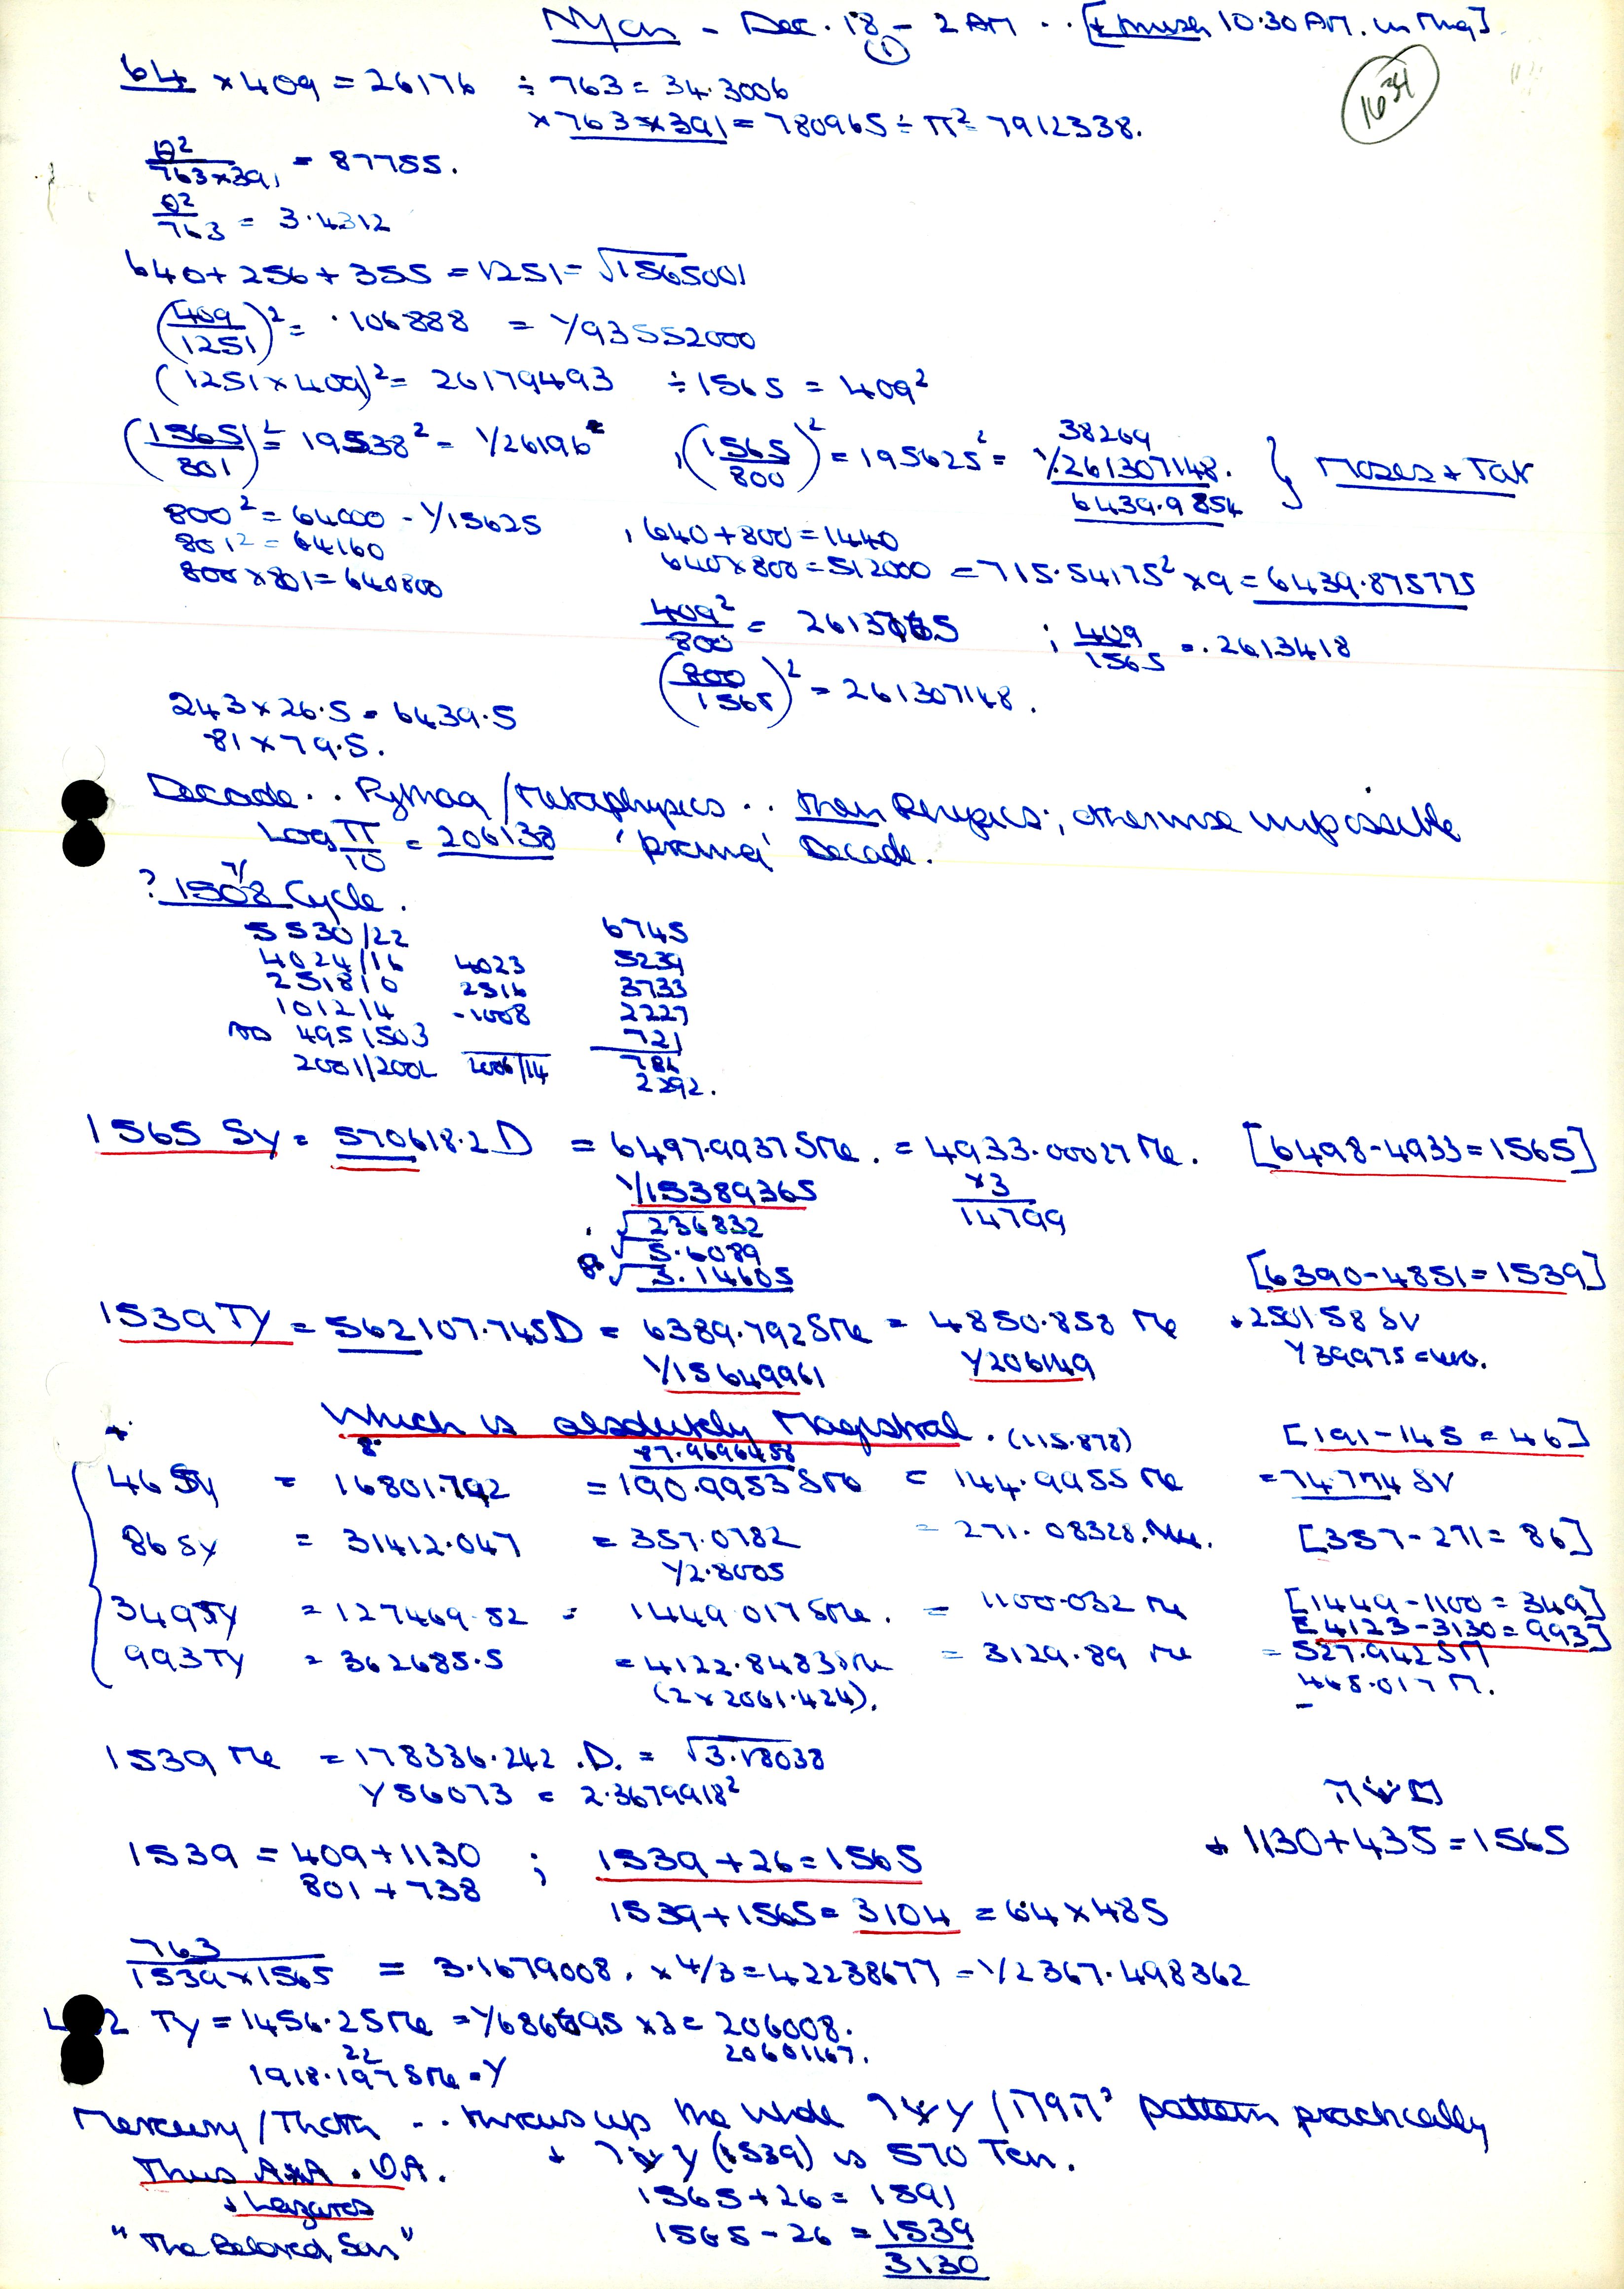 Dec. 18 - 2 AM .. [+ 10.30 AM. in]
①
1634
64 × 409 = 26176 ÷ 763 = 34.3006
× 763 × 391 = 780965 ÷ π² = 7912338.
θ²/763×391 = 87755.
θ²/763 = 3.4312
640 + 256 + 355 = 1251 = √1565001
(409/1251)² = .106888 = 1/93552000
(1251 × 409)² = 26179493 ÷ 1565 = 409²
(1565/801)² = 19538² = 1/26196 , (1565/800)² = 195625² = 38269 1/261307148. } Moses + Tar
6439.9854
800² = 64000 - 1/15625 , 640 + 800 = 1440
801² = 64160
640 × 800 = 512000 = 715.54175² × 9 = 6439.875775
800 × 801 = 640800
409²/800 = ; 409/1565 = .2613418
(800/1565)² = 261307148.
243 × 26.5 = 6439.5
81 × 79.5.
Decade .. Pythag / Metaphysics .. then Physics; otherwise impossible
Log π/10 = 206138 Decade.
? 1508 Cycle.
7/
5530/22 6745
4024/16 4023 5239
2518/0 2516 3733
1012/4 -1008 2227
AD 495/503 721
2001/2002 2006/14 786
2292.
1565 Sy = 570618.2 D = 6497.9937 SMe. = 4933.00027 Me. [6498-4933=1565]
1/15389365 ×3
√236832 14799
√5.6089
8√3.14605
[6390-4851=1539]
1539 Ty = 562107.745 D = 6389.792 SMe = 4850.858 Me + 250158 SV
1/15649961 1/206149 1/39975 =
Which is absolutely Magistral. (115.878) [191-145=46]
87.9696458
46 Sy = 16801.792 = 190.9953 SMe = 144.9955 Me = 74.774 SV
86 Sy = 31412.047 = 357.0782 = 271.08328. Me. [357-271=86]
1/2.8005
349 Ty = 127469.52 = 1449.017 SMe. = 1100.032 Me [1449-1100=349]
[4123-3130=993]
993 Ty = 362685.5 = 4122.8483 SMe = 3129.89 Me = 527.942 SM
(2 × 2061.424). 465.017 M.
1539 Me = 178336.242 .D. = √3.18038
1/56073 = 2.3679918²
1539 = 409 + 1130 ; 1539 + 26 = 1565 + 1130 + 435 = 1565
801 + 738
1539 + 1565 = 3104 = 64 × 485
763/1539×1565 = 3.1679008. × 4/3 = 42238677 = 1/2367.498362
2 Ty = 1456.25 Me = ×3 = 206008.
20601167.
22
1918.197 SMe = Y
Mercury / Thoth .. throws up the whole pattern practically
+ (1539) is 570 Ten.
Thus A×A . OA.
+ Lazarus
1565 + 26 = 1591
"The Beloved Son"
1565 - 26 = 1539
3130